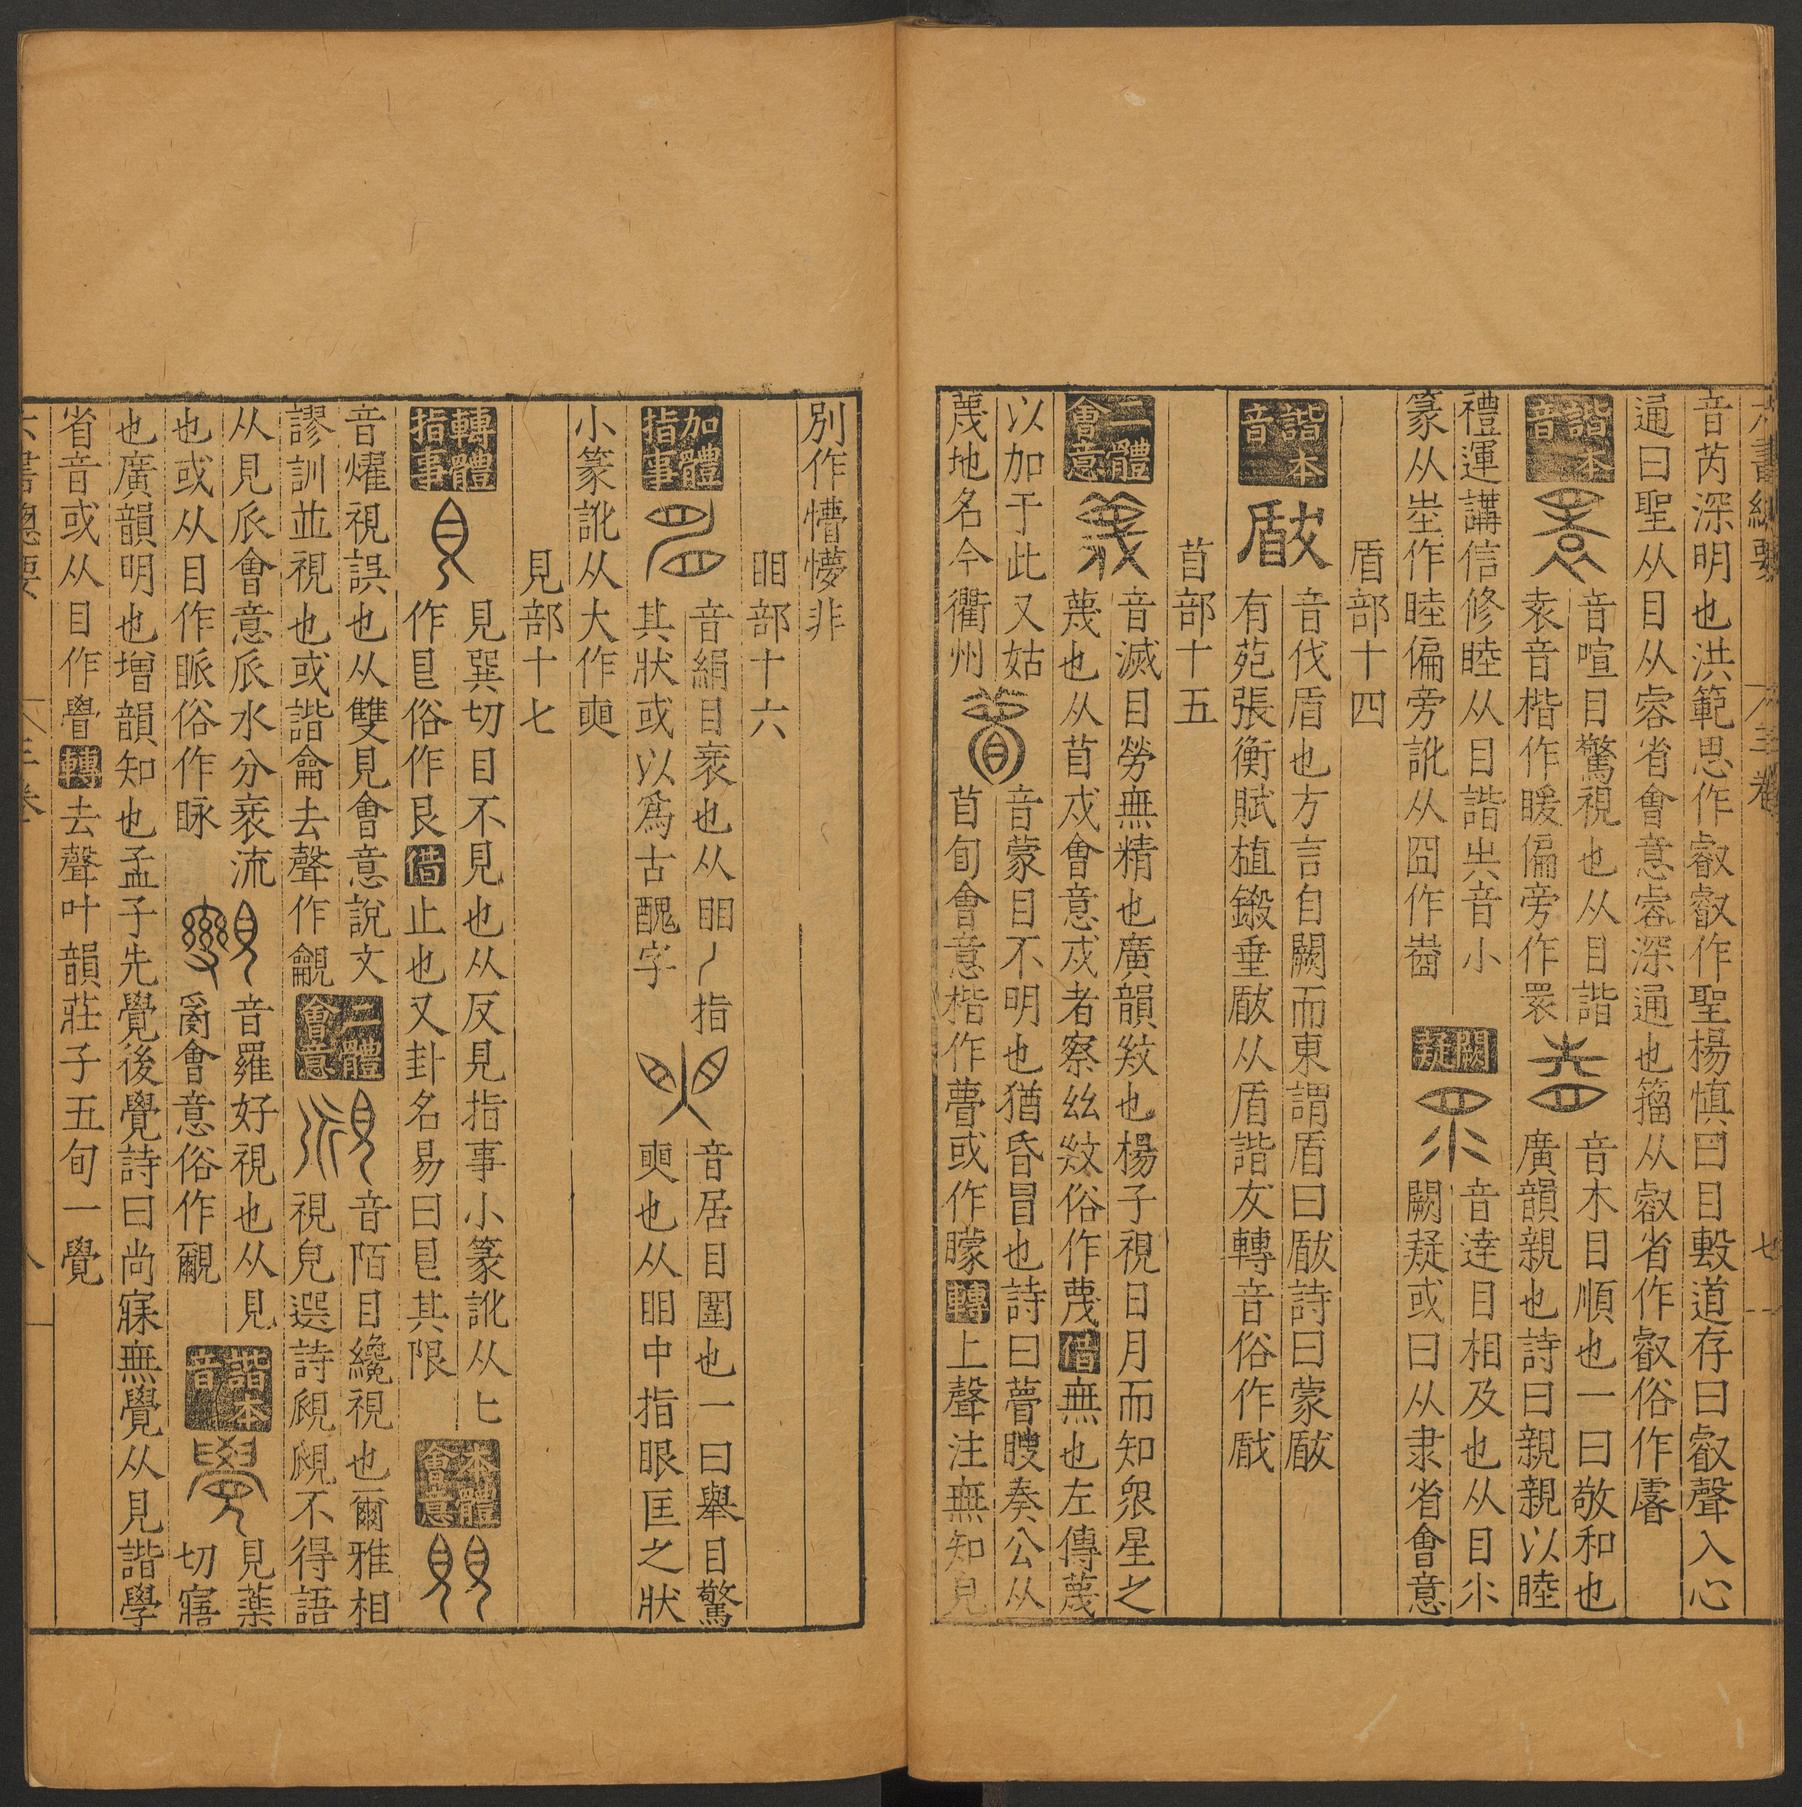 六書總要 三卷 七
音芮深明也洪範思作叡叡作聖楊慎曰目擊道存曰叡聲入心
通曰聖从目从睿省會意睿深通也籀从叡省作叡俗作
諧本音
音喧目驚視也从目諧
袁音楷作暖偏旁作睘
音木目順也一曰敬和也
廣韻親也詩曰親親以睦
禮運講信修睦从目諧音小
篆从坴作睦偏旁訛从囧作
闕疑
音逹目相及也从目
闕疑或曰从隶省會意
盾部十四
諧本音
音伐盾也方言自關而東謂盾曰瞂詩曰蒙瞂
有苑張衡賦植鎩垂瞂从盾諧犮轉音俗作
苜部十五
二體會意
音滅目勞無精也廣韻也楊子視日月而知眾星之
蔑也从苜戍會意戍者察俗作借無也左傳蔑
以加于此又姑
蔑地名今衢州
音蒙目不明也猶昏冒也詩曰瞍奏公从
苜旬會意楷作瞢或作矇轉上聲注無知見
別作懵懜非
䀠部十六
加體指事
音絹目衺也从䀠指
其狀或以爲古醜字
音居目圍也一曰舉目驚
奭也从䀠中指眼匡之狀
小篆訛从大作奭
見部十七
轉體指事
見巽切目不見也从反見指事小篆訛从匕
作皀俗作艮借止也又卦名易曰皀其限
本體會意
音燿視誤也从雙見會意說文
謬訓並視也或諧龠去聲作覶
二體會意
音陌目纔視也爾雅相
視皃選詩覛覛不得語
从見𠂢會意𠂢水分衺流
也或从目作眽俗作脉
音羅好視也从見
𤔔會意俗作覶
諧本音
見藥
切寤
也廣韻明也增韻知也孟子先覺後覺詩曰尚寐無覺从見諧學
省音或从目作轉去聲叶韻莊子五旬一覺
六書總要 三卷 八